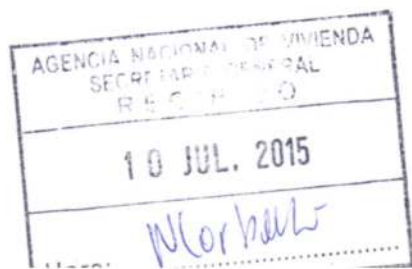 AGENCIA NACIONAL DE VIVIENDA
SECRETARIA GENERAL
RECIBIDO
10 JUL. 2015
Hora: